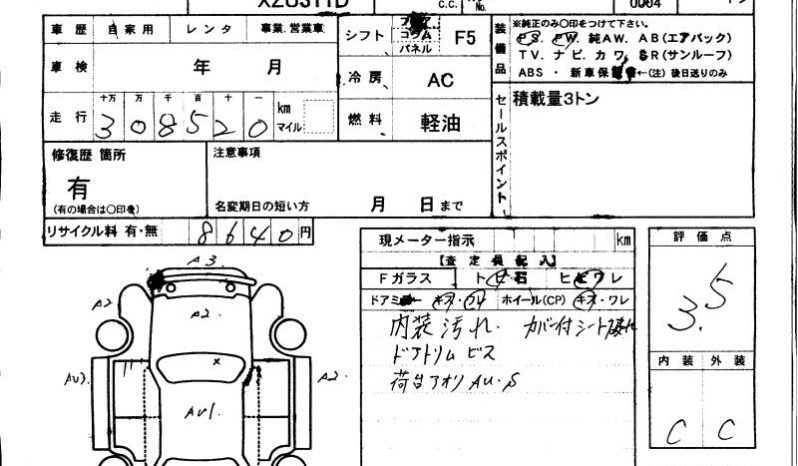 XZU311D
c.c.
No.
0004
車歴 自家用 レンタ 事業.営業車
シフト
コラム
パネル
F5
装備品
※純正のみ〇印をつけて下さい。
PS. PW. 純AW. AB(エアバック)
TV. ナビ. カワ. SR(サンルーフ)
ABS ・ 新車保 ←(注) 後日送りのみ
車検 年 月
冷房 AC
走行
十万 万 千 百 十 一
308520
km
マイル
燃料 軽油
セールスポイント
積載量3トン
修復歴 箇所
有
(有の場合は〇印を)
注意事項
名変期日の短い方 月 日まで
リサイクル料 有・無 8640円
現メーター指示 km
【査定員記入】
Fガラス トビ石 ヒビワレ
ドアミラー キズ・ワレ ホイール(CP) キズ・ワレ
内装汚れ. カバー付シート破れ
ドアトリム ビス
荷台アオリ AU.S
評価点
3.5
内装 外装
C C
A3
A2
A2
AU3
A2
×
AU1